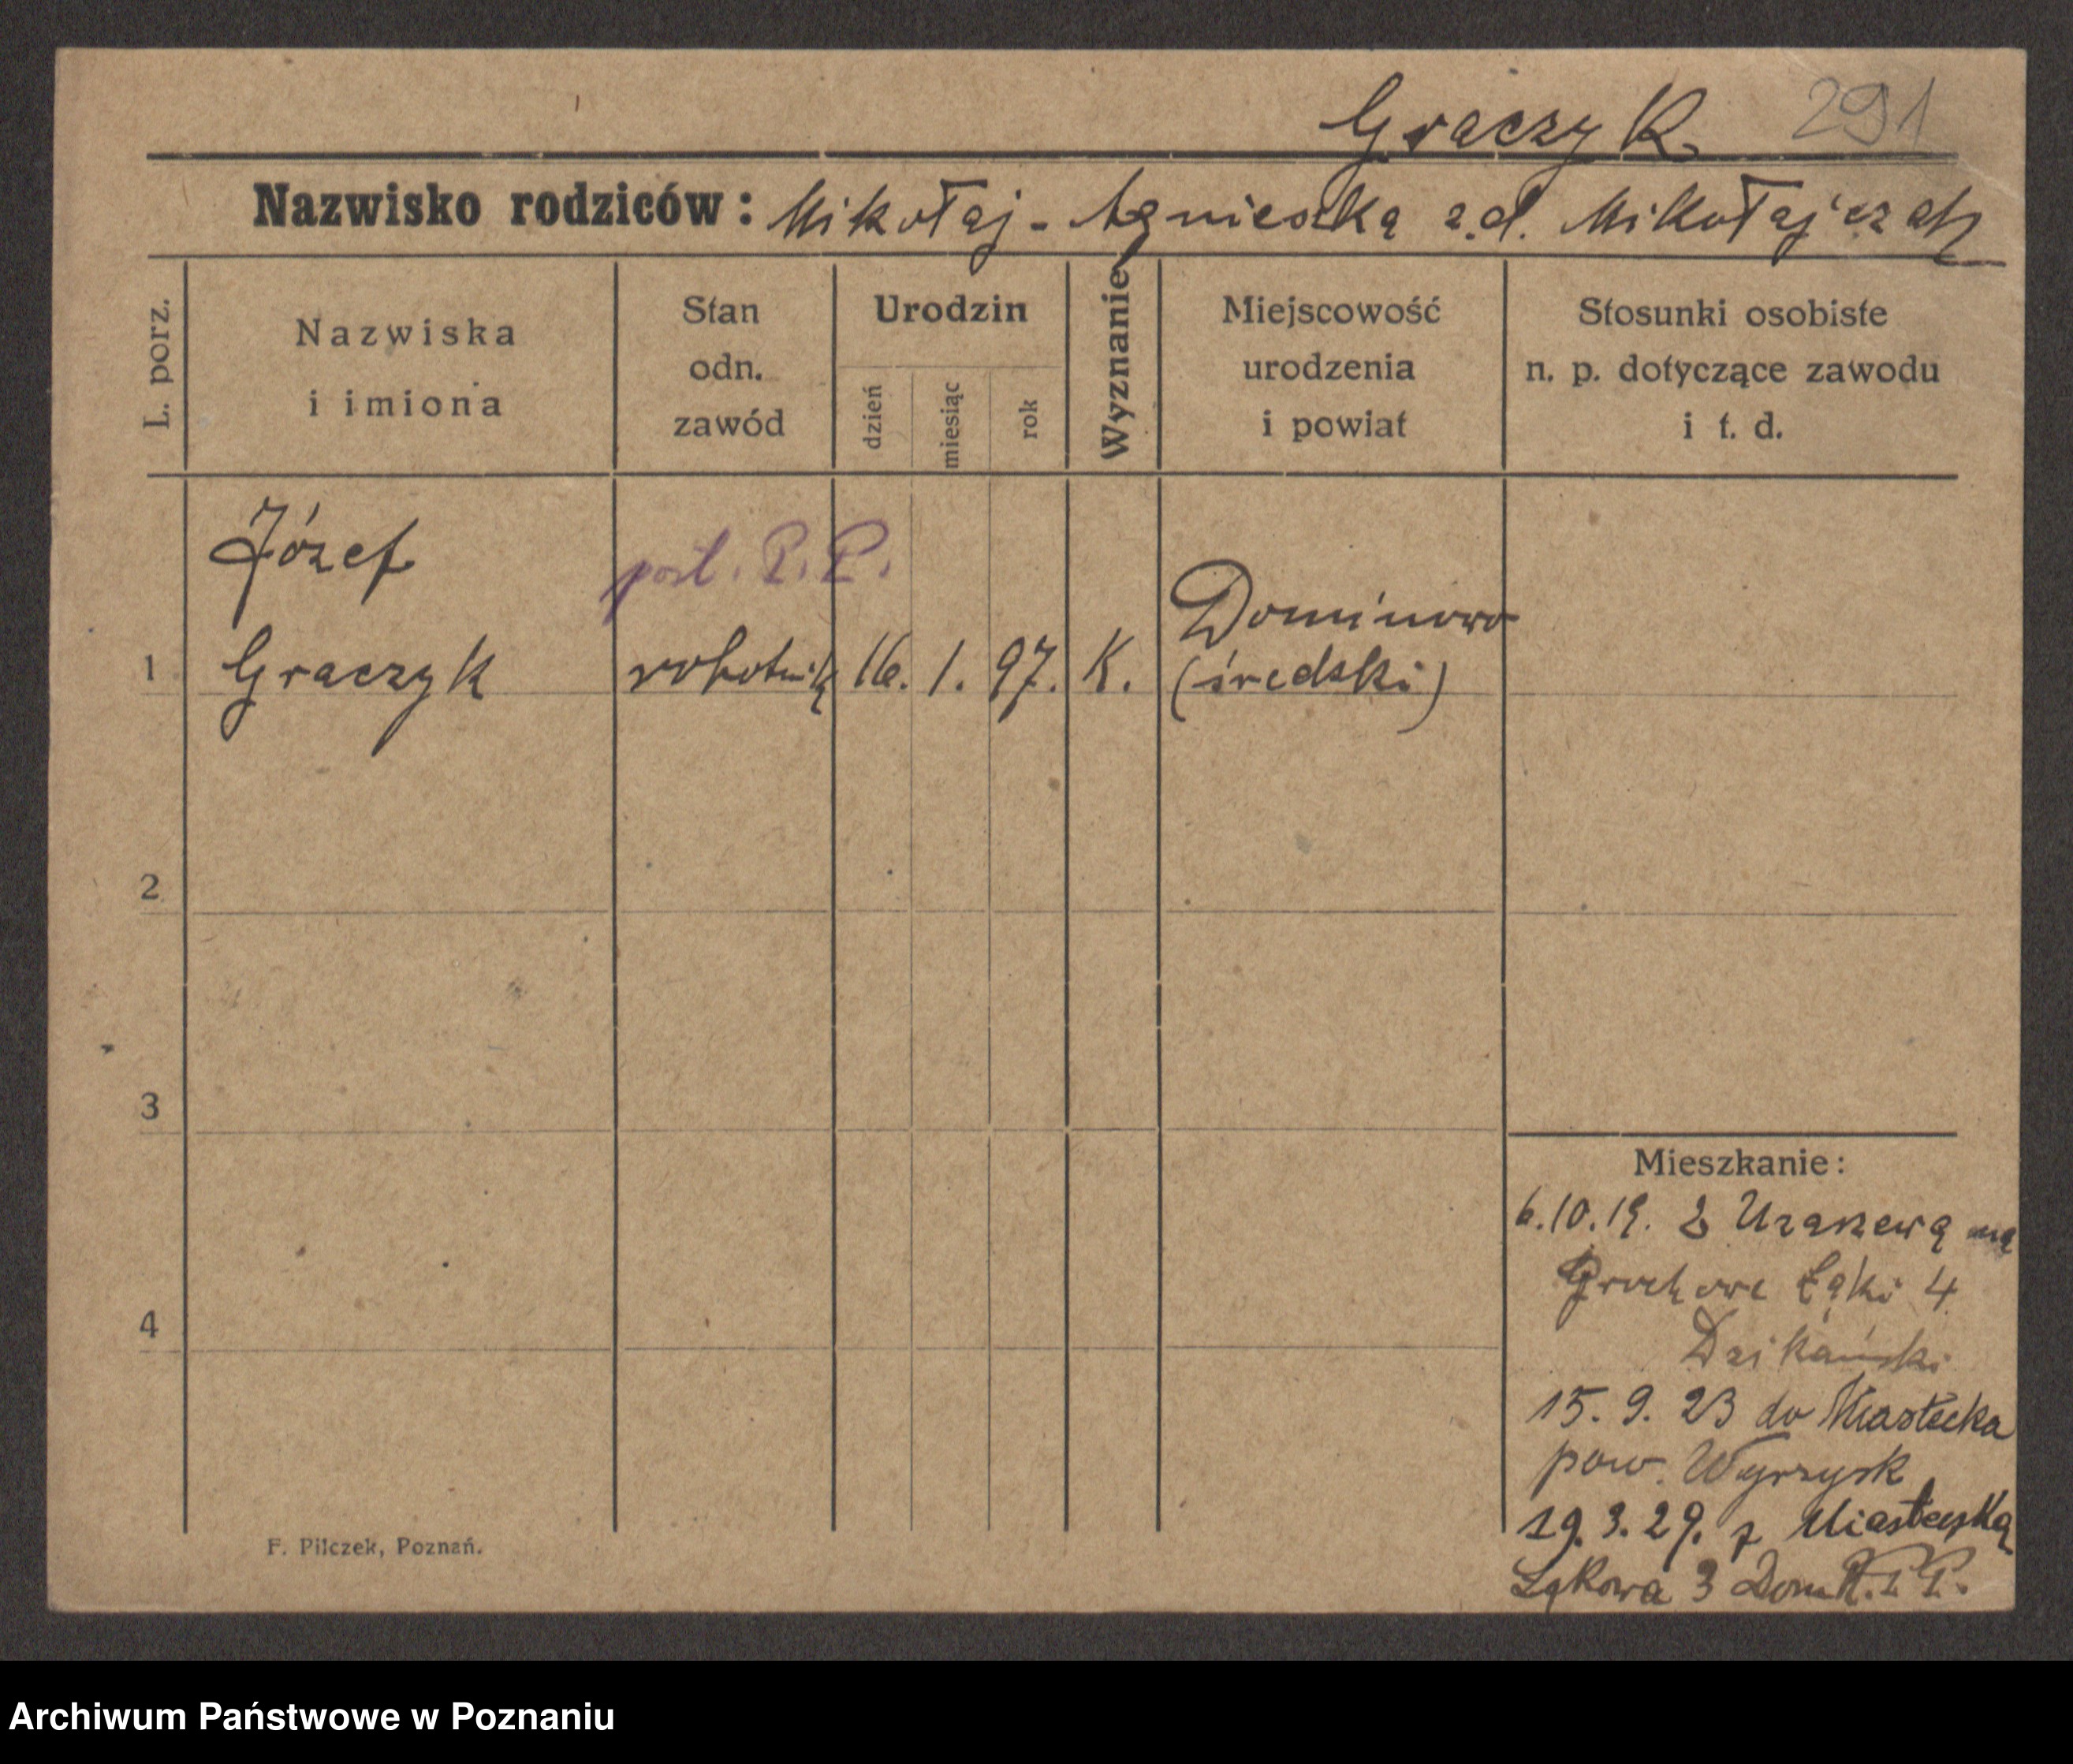 Graczyk 291
Nazwisko rodziców: Mikołaj - Agnieszka z.d. Mikołajczak
L. porz.
Nazwiska
i imiona
Stan
odn.
zawód
Urodzin
dzień
miesiąc
rok
Wyznanie
Miejscowość
urodzenia
i powiat
Stosunki osobiste
n. p. dotyczące zawodu
i t. d.
Józef
post. P. P.
Dominowo
1 Graczyk robotnik 16. 1. 97. K. (średzki)
2
3
4
Mieszkanie:
6.10.19. z
Grochowe Łąki 4
15. 9. 23 do Miastecka
pow. Wyrzysk
19. 3. 29. z Miasteczka
Łąkowa 3 Dom P. P.
F. Pilczek, Poznań.
Archiwum Państwowe w Poznaniu